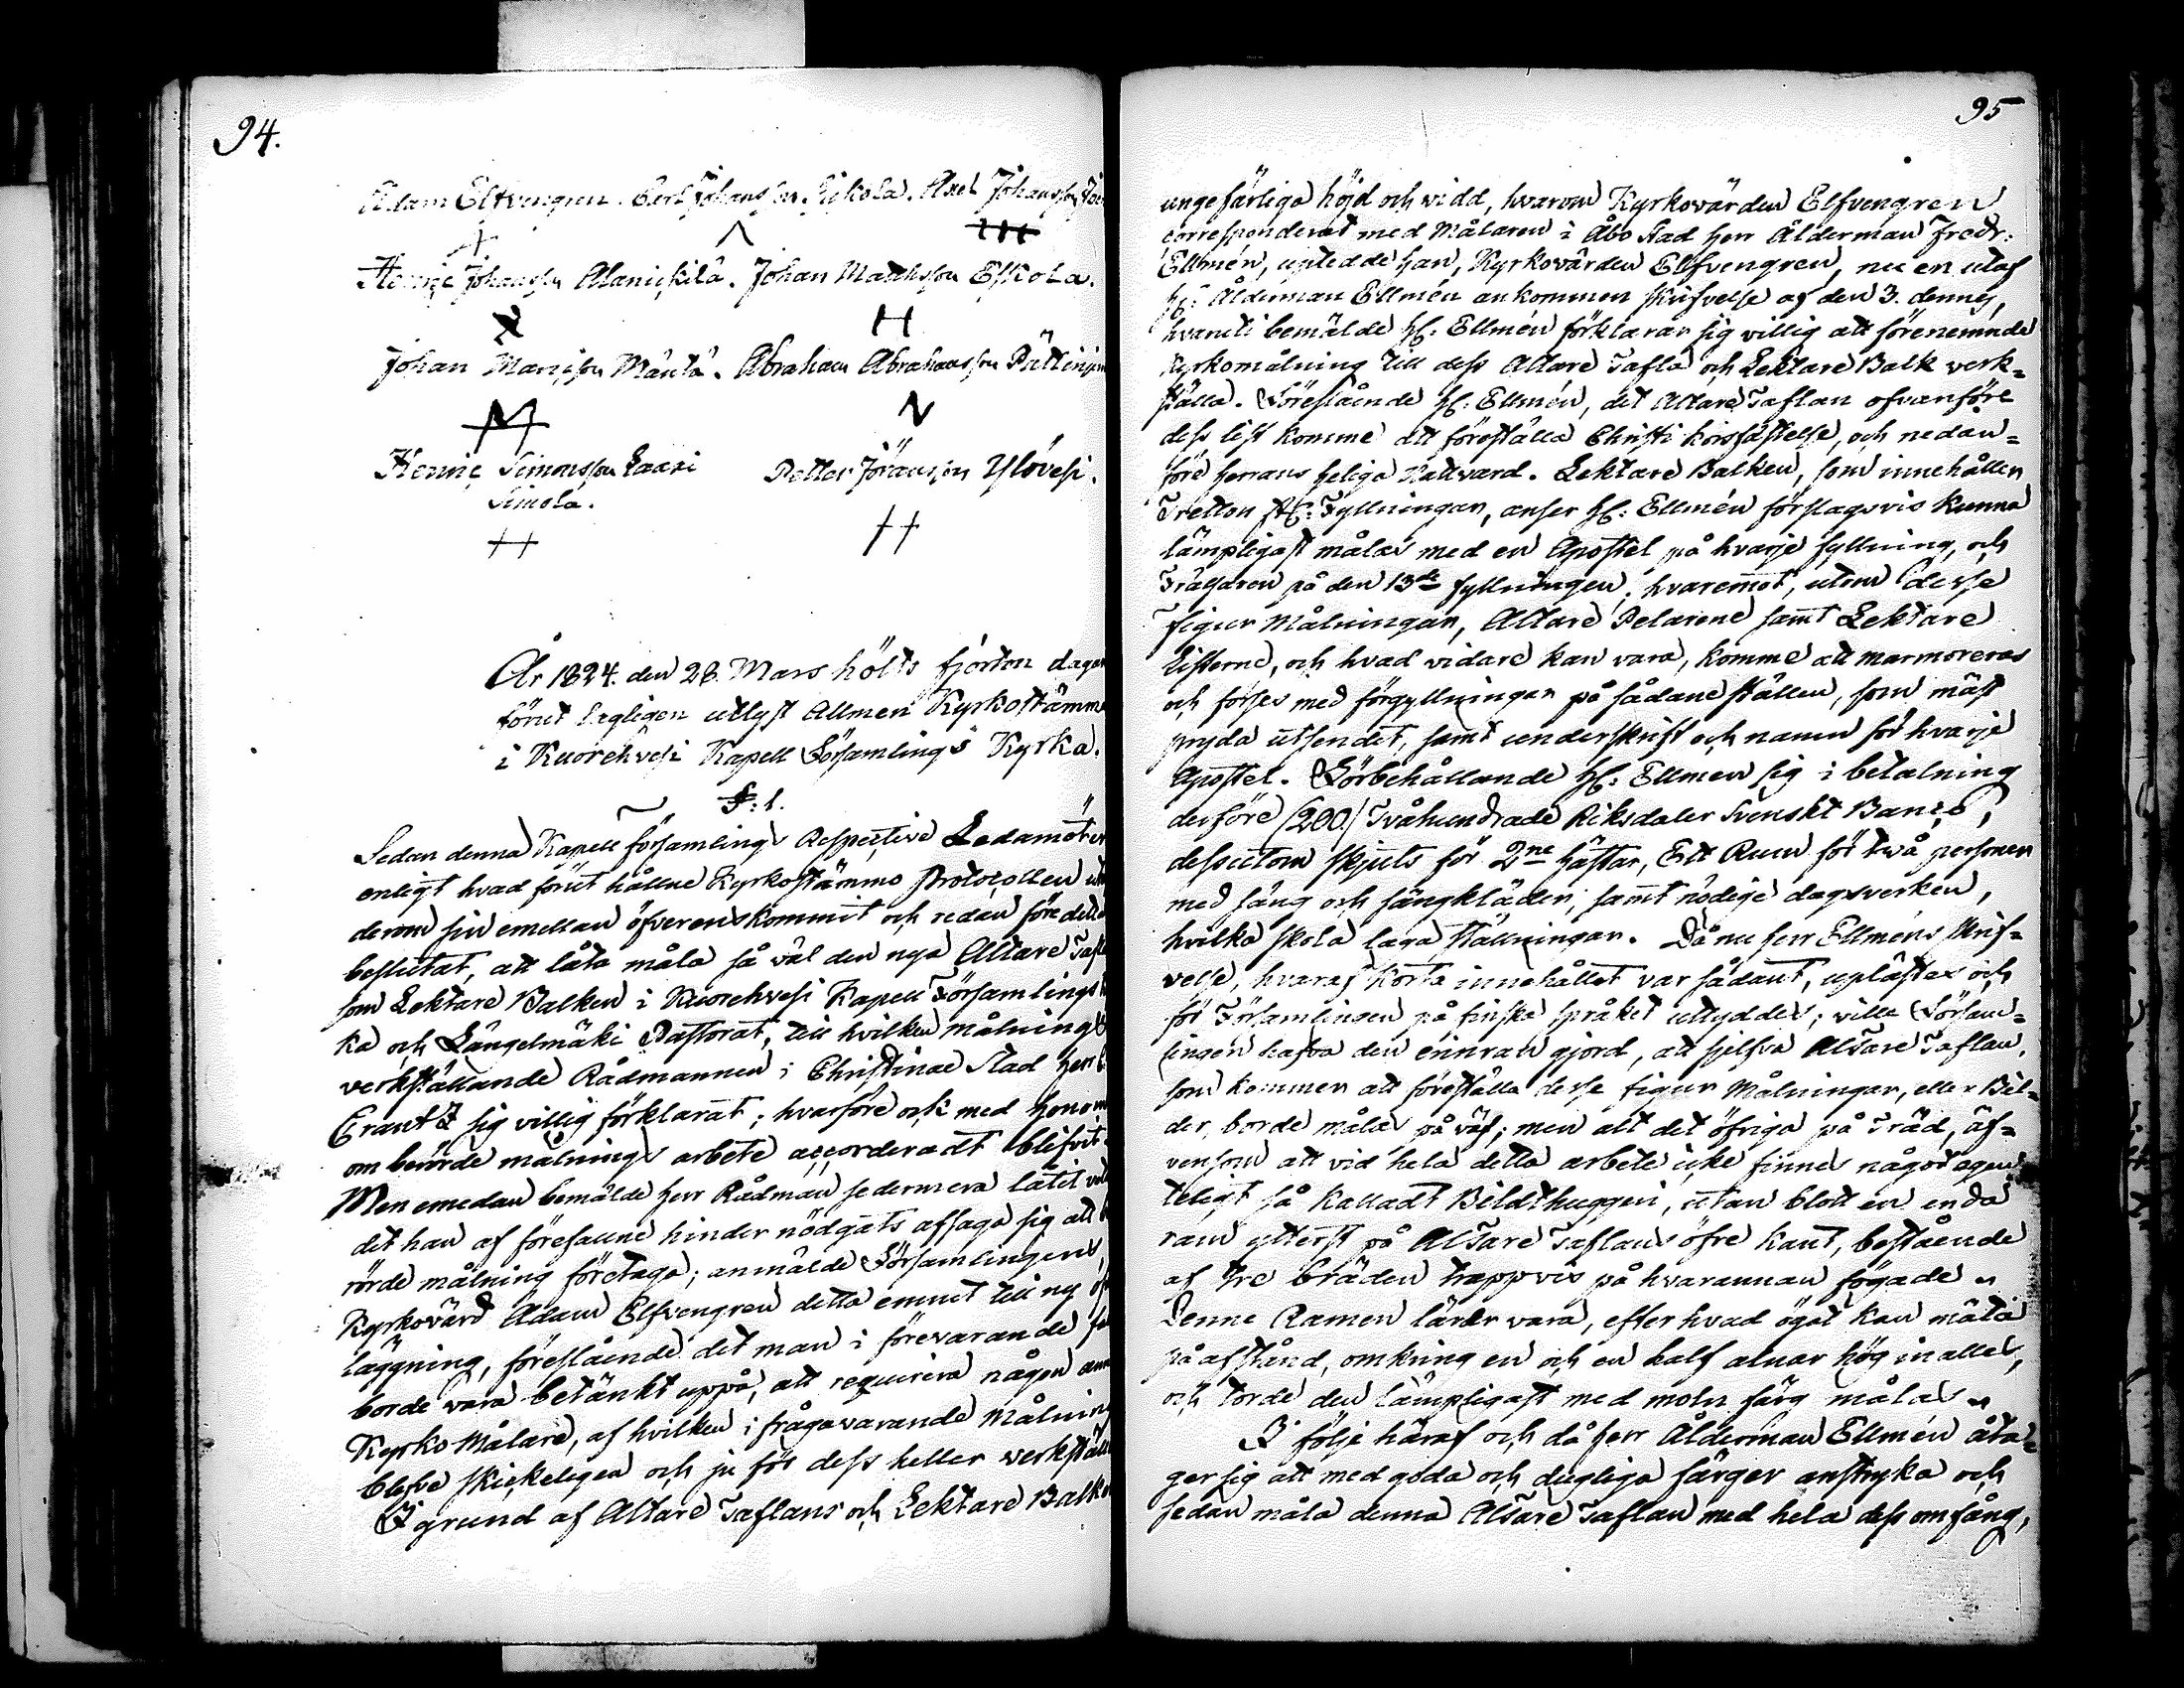 94.
Adam Elfvengren. Carl Johansson Eskola. Axel Johansson
Henric Johansson Alanickilä. Johan Mathsson Eskola.
Johan Maricson Mäntä. Abraham Abrahamsson
Henric Simonsson Laari Petter Jöransson Ylövesi.
Simola.
År 1824. den 28. Mars hölts fjorton dagar
förut lagligen utlyst Allmen Kyrkostämma
i Kuorehvesi Kapell Församlings Kyrka.
§: 1.
Sedan denna Kapell församlings Respective Ledamöter
enligt hvad förut hållne Kyrkostämmo Protocollen
derom sin emellan öfverenskommit och redan före detta
beslutat, att låta måla så väl den nya Altare Tafla
som Lektare Balken i Kuorehvesi Kapell Församlings
ka och Längelmäki Pastorat, till hvilken målnings
verkställande Rådmannen i Christinae Stad Herr
Crantz sig villig förklarat; hvarföre och med honom
om berörde målnings arbete accorderadt blifvit.
Men emedan bemälde Herr Rådman sedermera låtit
det han af förefallne hinder nödgats afsaga sig att
rörde målning företaga; anmälde Församlingens
Kyrkovärd Adam Elfvengren detta emnet till ny
läggning, föreslående det man i förevarande
borde vara betänkt uppå, att requirera någon
Kyrko Målare, af hvilken i frågavarande Målning
blefve skickeligen och ju för dess heller verkstäld
I grund af Altare Taflans och Lektare Balkens
95
ungefärliga höjd och vidd, hvarom Kyrkovärden Elfvengren
corresponderat med Målaren i Åbo Stad Herr Ålderman Fredr:
Ellmén, upledde han, Kyrkovärden Elfvengren, nu en utaf
Hr: Ålderman Ellmén ankommen skrifvelse af den 3. dennes,
hvaruti bemälde Hr: Ellmén förklarar sig villig att förenemnde
Kyrkomålning till dess Altare Tafla och Lektare Balk verk=
ställa. Föreslående Hr: Ellmén, det Altare Taflan ofvanföre
dess list komme att föreställa Christi korsfästelse, och nedan=
före Herrans heliga Nattvard. Lektare Balken, som innehåller
Tretton St: Fyllningar, anser Hr: Ellmén förslagsvis kunna
lämpligast målas med en Apostel på hvarje fyllning, och
Frälsaren på den 13de fyllningen; hvaremot, utom desse
figur Målningar, Altare Pelarene samt Lektare
Listerne, och hvad vidare kan vara, komme att marmoreras
och förses med förgyllningar på sådane ställen, som mäst
pryda utseendet, samt underskrift och namn för hvarje
Apostel. Förbehållande Hr: Ellmen sig i betalning
derföre (200.) Tvåhundrade Riksdaler Svenskt Banco,
dessutom skjuts för 2ne hästar, Ett Rum för två personer
med säng och sängkläder, samt nödige dagsverken,
hvilka skola laga ställningar. Då nu Herr Ellméns skrif=
velse, hvaraf korta innehållet var sådant, uplästes och
för Församlingen på finska språket uttyddes; ville Försam=
lingen hafva den erinran gjord, att sjelfva Altare Taflan,
som kommer att föreställa desse figur Målningar, eller Bil=
der, borde målas på väf; men att det öfriga på Träd, äf=
vensom att vid hela detta arbete icke finnes något egen
teligt så kalladt Bildthuggeri, utan blott en enda
ram ytterst på Altare Taflans öfre kant, bestående
af tre bräden trappvis på hvarannan fogade
Denne Ramen lärer vara, efter hvad ögat kan mäta
på afstånd, omkring en och en half alnar hög in alles,
och torde den lämpligast med moln färg målas
I följe häraf och då Herr Ålderman Ellmén åta=
ger sig att med goda och dugliga färger anstryka och
sedan måla denna Altare Taflan med hela dess omfång,